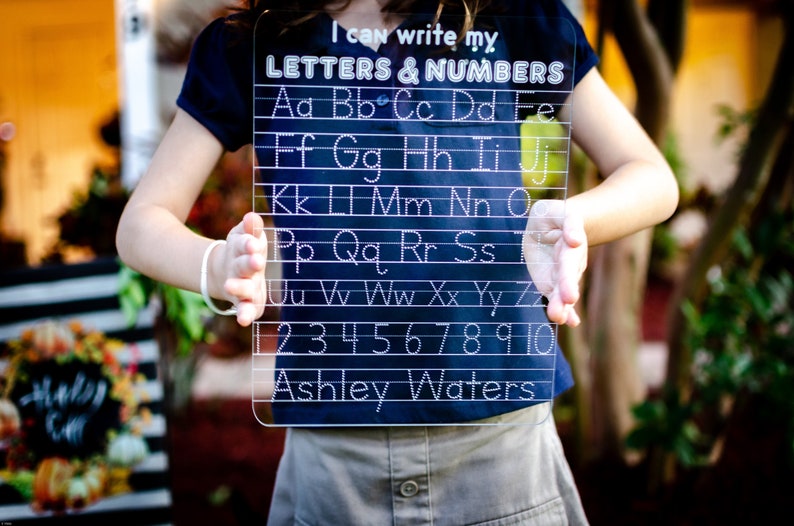 I can write my
LETTERS & NUMBERS
Aa Bb Cc Dd Ee
Ff Gg Hh Ii Jj
Kk Ll Mm Nn Oo
Pp Qq Rr Ss Tt
Uu Vv Ww Xx Yy Zz
1 2 3 4 5 6 7 8 9 10
Ashley Waters